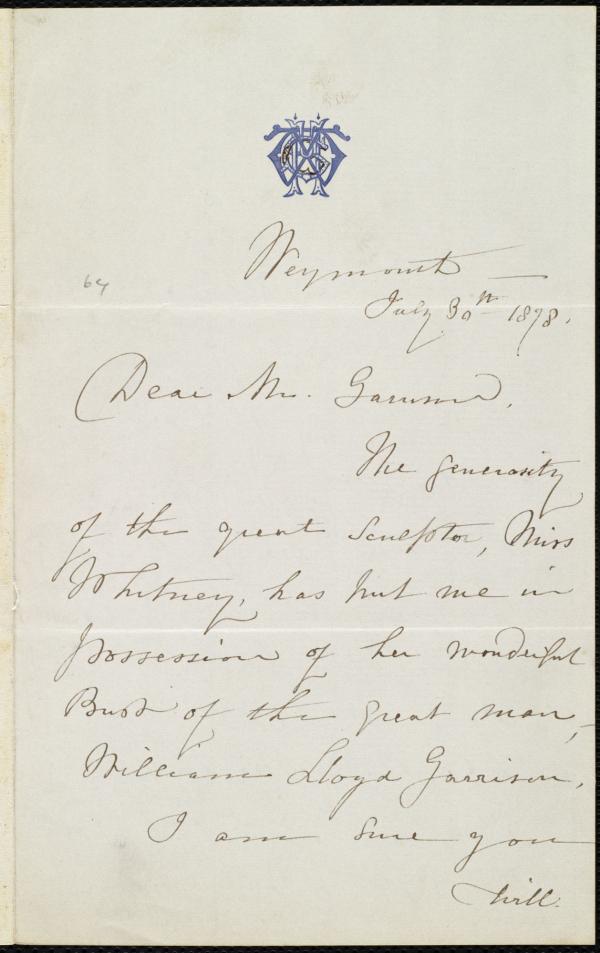 Weymouth —
64
July 30th 1878.
Dear Mr. Garrison,
The generosity
of the great Sculptor, Miss
Whitney, has put me in
possession of her wonderful
Bust of the great man, –
William Lloyd Garrison.
I am sure you
will